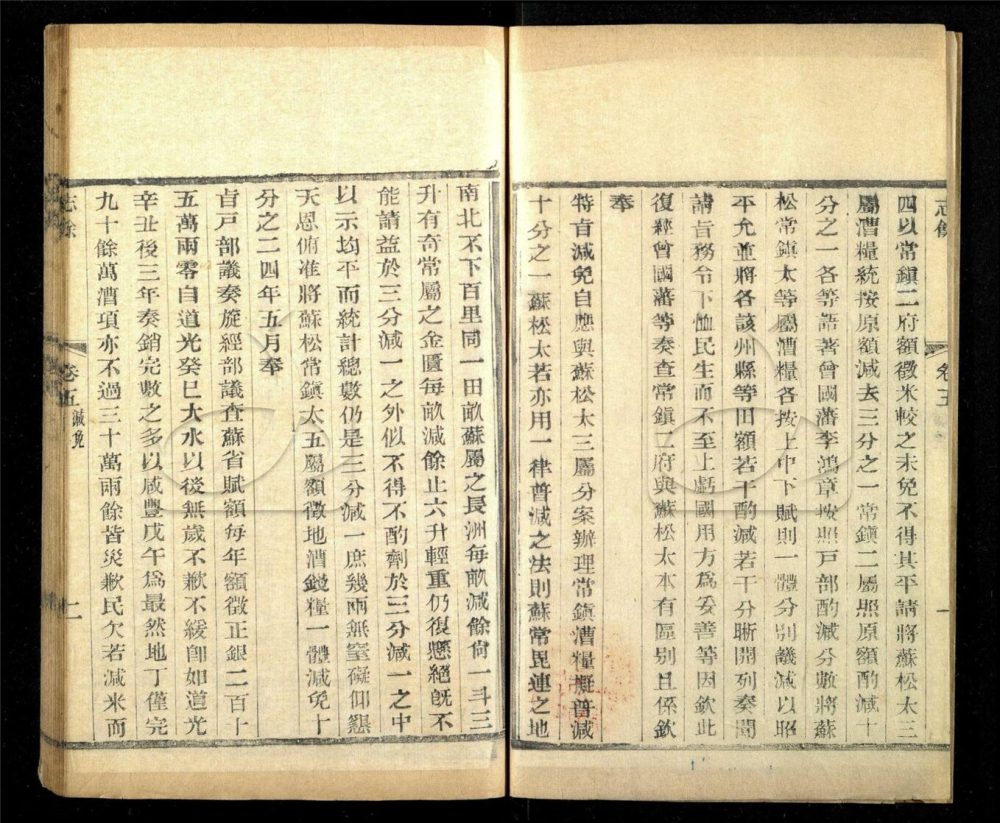 志餘
卷五
一
四以常鎮二府額徵米較之未免不得其平請將蘇松太三
屬漕糧統按原額減去三分之一常鎮二屬照原額酌減十
分之一各等語著曾國藩李鴻章按照戶部酌減分數將蘇
松常鎮太等屬漕糧各按上中下賦則一體分別議減以昭
平允並將各該州縣等田額若干酌減若干分晰開列奏聞
請旨務令下恤民生而不至上虧國用方爲妥善等因欽此
復經曾國藩等奏查常鎮二府與蘇松太本有區別且係欽
奉
特旨減免自應與蘇松太三屬分案辦理常鎮漕糧擬普減
十分之一蘇松太若亦用一律普減之法則蘇常毘連之地
南北不下百里同一田畝蘇屬之長洲每畝減餘尙一斗三
升有奇常屬之金匱每畝減餘止六升輕重仍很懸絕旣不
能請益於三分減一之外似不得不酌劑於三分減一之中
以示均平而統計總數仍是三分減一庶幾兩無窒礙仰懇
天恩俯准將蘇松常鎮太五屬額徵地漕錢糧一體減免十
分之二四年五月奉
旨戶部議奏旋經部議查蘇省賦額每年額徵正銀二百十
五萬兩零自道光癸巳大水以後無歲不歉不緩卽如道光
辛丑後三年奏銷完數之多以咸豐戊午爲最然地丁僅完
九十餘萬漕項亦不過三十萬兩餘皆災歉民欠若減米而
志餘
卷五 減免
二